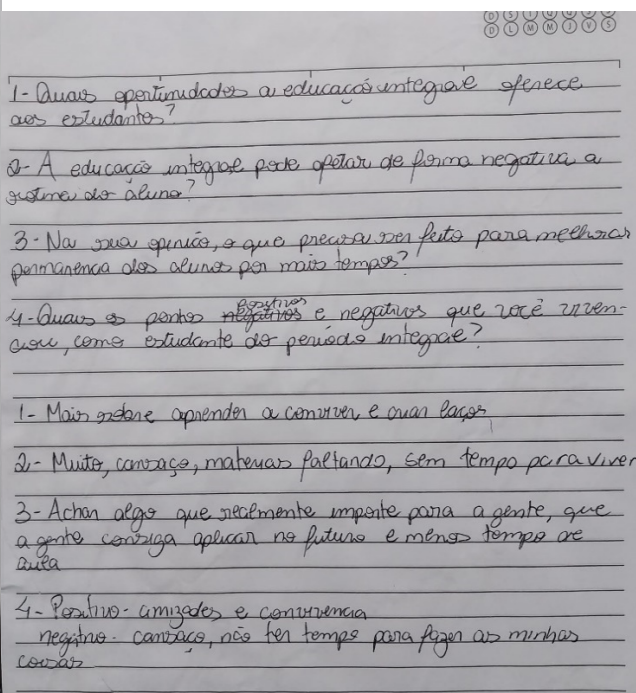 D S T Q Q S S
D L M M J V S
1- Quais oportunidades a educação integral oferece
aos estudantes?
2- A educação integral pode afetar de forma negativa a
rotina do aluno?
3- Na sua opinião, o que precisa ser feito para melhorar
permanência dos alunos por mais tempos?
4- Quais os pontos negativos positivos e negativos que você viven-
ciou, como estudante do período integral?
1- Mais sobre aprender a conviver e criar laços
2- Muito, cansaço, materias faltando, sem tempo para viver
3- Achar algo que realmente importe para a gente, que
a gente consiga aplicar no futuro e menos tempo de
aula
4- Positivo- amizades e convivencia
negativo- cansaço, não ter tempo para fazer as minhas
coisas